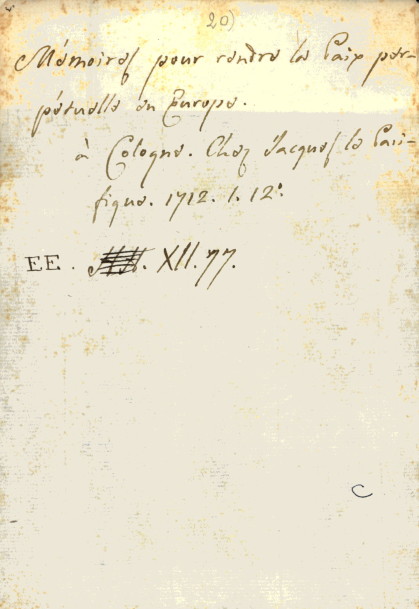 20)
Mémoires pour rendre la Paix per-
pétuelle en Europe.
à Cologne. Chez Jacques le Paci-
fique. 1712. 1. 12°.
EE. XII. 77.
C